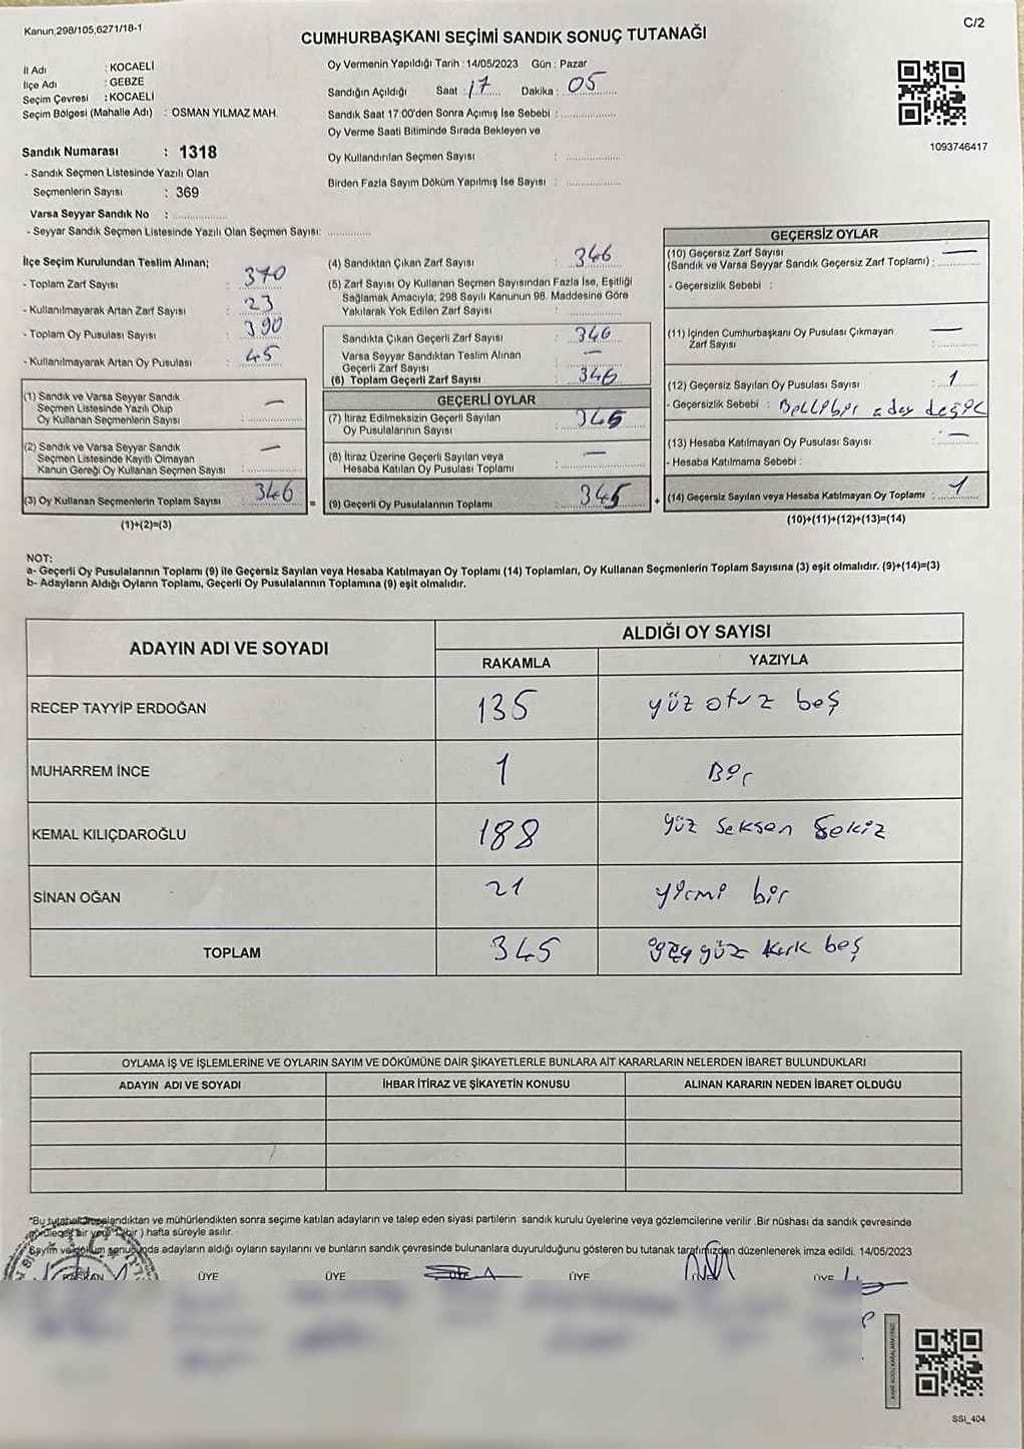 Kanun,298/105,6271/18-1
C/2
CUMHURBAŞKANI SEÇİMİ SANDIK SONUÇ TUTANAĞI
İl Adı : KOCAELİ
İlçe Adı : GEBZE
Seçim Çevresi : KOCAELİ
Seçim Bölgesi (Mahalle Adı) : OSMAN YILMAZ MAH.
Sandık Numarası : 1318
- Sandık Seçmen Listesinde Yazılı Olan
Seçmenlerin Sayısı : 369
Varsa Seyyar Sandık No :
- Seyyar Sandık Seçmen Listesinde Yazılı Olan Seçmen Sayısı:
Oy Vermenin Yapıldığı Tarih : 14/05/2023 Gün : Pazar
Sandığın Açıldığı Saat : 17 Dakika : 05
Sandık Saat 17:00'den Sonra Açımış İse Sebebi :
Oy Verme Saati Bitiminde Sırada Bekleyen ve
Oy Kullandırılan Seçmen Sayısı :
Birden Fazla Sayım Döküm Yapılmış İse Sayısı :
1093746417
İlçe Seçim Kurulundan Teslim Alınan;
- Toplam Zarf Sayısı : 370
- Kullanılmayarak Artan Zarf Sayısı : 23
- Toplam Oy Pusulası Sayısı : 390
- Kullanılmayarak Artan Oy Pusulası : 45
(1) Sandık ve Varsa Seyyar Sandık
Seçmen Listesinde Yazılı Olup
Oy Kullanan Seçmenlerin Sayısı : —
(2) Sandık ve Varsa Seyyar Sandık
Seçmen Listesinde Kayıtlı Olmayan
Kanun Gereği Oy Kullanan Seçmen Sayısı : —
(3) Oy Kullanan Seçmenlerin Toplam Sayısı : 346 =
(1)+(2)=(3)
(4) Sandıktan Çıkan Zarf Sayısı : 346
(5) Zarf Sayısı Oy Kullanan Seçmen Sayısından Fazla İse, Eşitliği
Sağlamak Amacıyla; 298 Sayılı Kanunun 98. Maddesine Göre
Yakılarak Yok Edilen Zarf Sayısı :
Sandıkta Çıkan Geçerli Zarf Sayısı : 346
Varsa Seyyar Sandıktan Teslim Alınan
Geçerli Zarf Sayısı : —
(6) Toplam Geçerli Zarf Sayısı : 346
GEÇERLİ OYLAR
(7) İtiraz Edilmeksizin Geçerli Sayılan
Oy Pusulalarının Sayısı : 345
(8) İtiraz Üzerine Geçerli Sayılan veya
Hesaba Katılan Oy Pusulası Toplamı : —
(9) Geçerli Oy Pusulalarının Toplamı : 345 +
GEÇERSİZ OYLAR
(10) Geçersiz Zarf Sayısı
(Sandık ve Varsa Seyyar Sandık Geçersiz Zarf Toplamı) : —
- Geçersizlik Sebebi :
(11) İçinden Cumhurbaşkanı Oy Pusulası Çıkmayan
Zarf Sayısı : —
(12) Geçersiz Sayılan Oy Pusulası Sayısı : 1
- Geçersizlik Sebebi : Belli bir aday değil
(13) Hesaba Katılmayan Oy Pusulası Sayısı : —
- Hesaba Katılmama Sebebi :
(14) Geçersiz Sayılan veya Hesaba Katılmayan Oy Toplamı : 1
(10)+(11)+(12)+(13)=(14)
NOT:
a- Geçerli Oy Pusulalarının Toplamı (9) ile Geçersiz Sayılan veya Hesaba Katılmayan Oy Toplamı (14) Toplamları, Oy Kullanan Seçmenlerin Toplam Sayısına (3) eşit olmalıdır. (9)+(14)=(3)
b- Adayların Aldığı Oyların Toplamı, Geçerli Oy Pusulalarının Toplamına (9) eşit olmalıdır.
ADAYIN ADI VE SOYADI ALDIĞI OY SAYISI
RAKAMLA YAZIYLA
RECEP TAYYİP ERDOĞAN 135 yüz otuz beş
MUHARREM İNCE 1 Bir
KEMAL KILIÇDAROĞLU 188 yüz seksen sekiz
SİNAN OĞAN 21 yirmi bir
TOPLAM 345 üçyüz kırk beş
OYLAMA İŞ VE İŞLEMLERİNE VE OYLARIN SAYIM VE DÖKÜMÜNE DAİR ŞİKAYETLERLE BUNLARA AİT KARARLARIN NELERDEN İBARET BULUNDUKLARI
ADAYIN ADI VE SOYADI İHBAR İTİRAZ VE ŞİKAYETİN KONUSU ALINAN KARARIN NEDEN İBARET OLDUĞU
"Bu tutanak düzenlendikten ve mühürlendikten sonra seçime katılan adayların ve talep eden siyasi partilerin sandık kurulu üyelerine veya gözlemcilerine verilir .Bir nüshası da sandık çevresinde
bir yere (bir) hafta süreyle asılır.
Sayım ve döküm sonucunda adayların aldığı oyların sayılarını ve bunların sandık çevresinde bulunanlara duyurulduğunu gösteren bu tutanak tarafımızdan düzenlenerek imza edildi. 14/05/2023
BAŞKAN ÜYE ÜYE ÜYE ÜYE ÜYE ÜYE
SSI_404